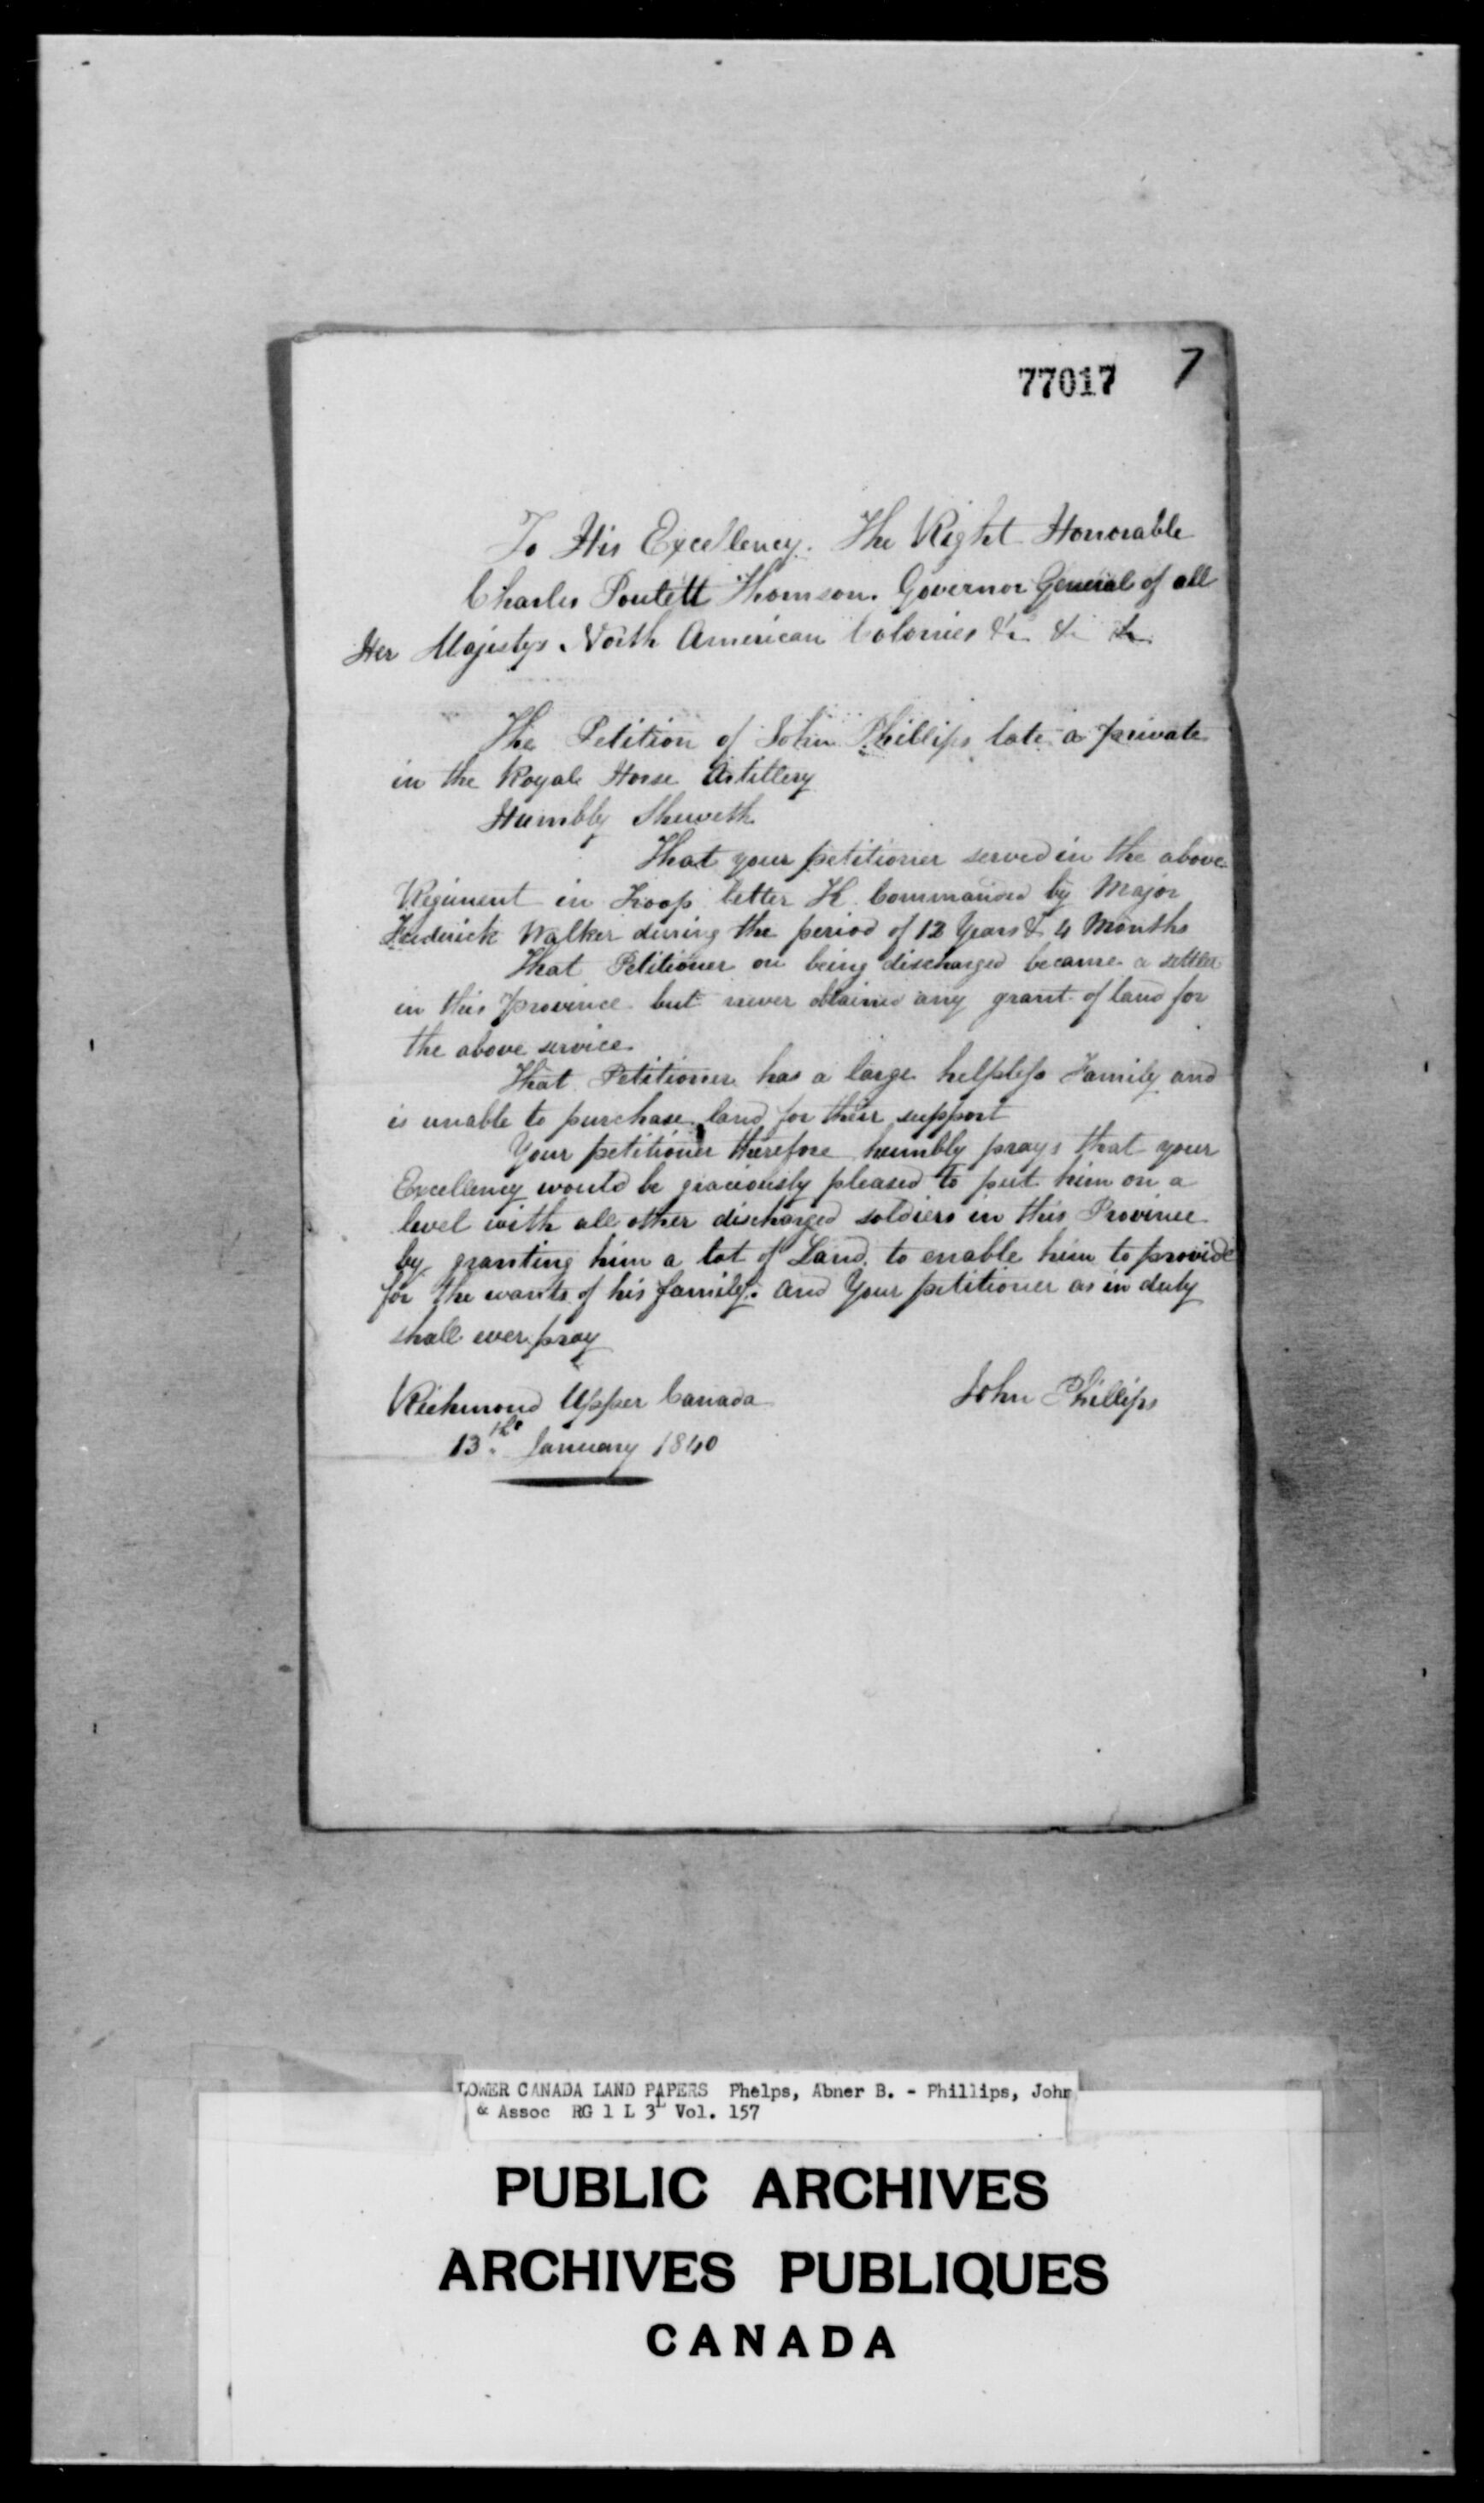 77017 7
To His Excellency. The Right Honorable
Charles Poulett Thomson. Governor General of all
Her Majestys North American Colonies &c &c &c
The Petition of John Phillips late a private
in the Royal Horse Artillery
Humbly Sheweth
That your petitioner served in the above
Regiment in Troop letter H Commanded by Major
Frederick Walker during the period of 12 Years & 4 Months
That Petitioner on being discharged became a settler
in this province but never obtained any grant of land for
the above service
That Petitioner has a large helpless Family and
is unable to purchase land for their support
Your petitioner therefore humbly prays that your
Excellency would be graciously pleased to put him on a
level with all other discharged soldiers in this Province
by granting him a lot of Land. to enable him to provide
for the wants of his family. And Your petitioner as in duty
shall ever pray
Richmond Upper Canada John Phillips
13th January 1840
LOWER CANADA LAND PAPERS Phelps, Abner B. - Phillips, John
& Assoc RG 1 L 3L Vol. 157
PUBLIC ARCHIVES
ARCHIVES PUBLIQUES
CANADA